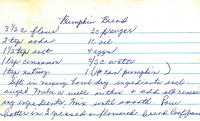 Pumpkin Bread
3 1/2 c flour 3 c sugar
2 tsp soda 1 c oil
1 1/2 tsp salt 4 eggs
1 tsp cinnamon 2/3 c water
1 tsp nutmeg (1 can pumpkin)
Sift in mixing bowl dry ingredients with
sugar. Make a well in this & add all remain
ing ingredients. Mix until smooth. Pour
batter in 2 greased & floured Bread